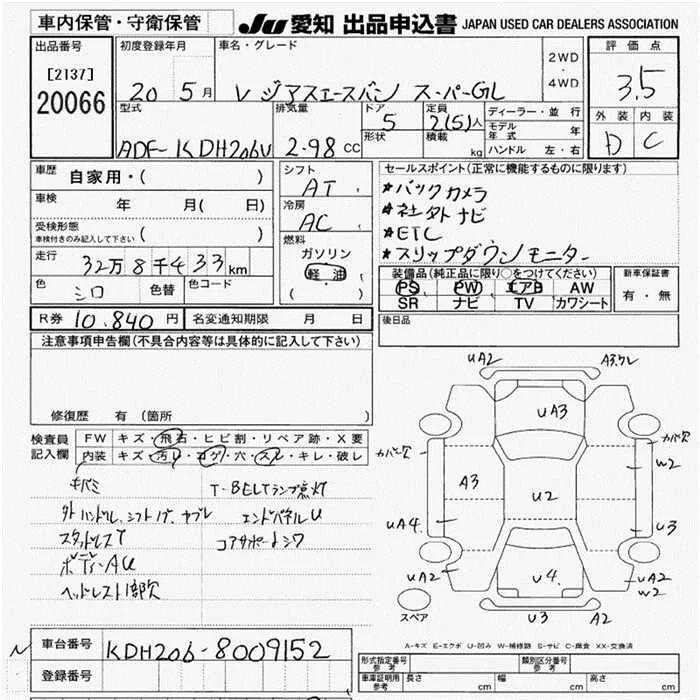 車内保管・守衛保管
JU 愛知 出品申込書 JAPAN USED CAR DEALERS ASSOCIATION
出品番号
[2137]
20066
初度登録年月
20年5月
車名・グレード
V ジアスエースバン スーパーGL
2WD
・
4WD
評価点
3.5
外装 内装
D C
型式
ADF-KDH206V
排気量
2.98 cc
ドア
5
形状
定員
2(5)人
積載
kg
ディーラー・並行
モデル年式 年
ハンドル 左・右
車歴
自家用・( )
車検
年 月( 日)
受検形態
車検付きのみ記入して下さい ( )
走行
32万8千433km
色
シロ
色替
色コード
シフト
AT
冷房
AC
燃料
ガソリン
軽油
( )
セールスポイント(正常に機能するものに限ります)
*バックカメラ
*社外ナビ
*ETC
*スリップダウンモニター
装備品(純正品に限り○をつけてください)
PS PW エアB AW
SR ナビ TV カワシート
新車保証書
有・無
後日品
R券 10.840円
名変通知期限 月 日
注意事項申告欄(不具合内容等は具体的に記入して下さい)
修復歴 有(箇所 )
検査員記入欄
FW キズ・飛石・ヒビ割・リペア跡・X要
内装 キズ・汚レ・コゲ・穴・スレ・キレ・破レ
キバミ
外ハンドル、シフトノブ、ヤブレ
スタッドレスT
ボディAU
ヘッドレスト1部欠
T-BELTランプ点灯
エンドパネルU
コアサポートシワ
UA2
A3.ワレ
UA3
カバー欠
カバー欠
W2
A3
U2
UA4
U3
UA2
U4
UA2
W2
スペア
U3
A2
A-キズ E-エクボ U-凹み W-補修跡 S-サビ C-腐食 XX-交換済
車台番号
KDH206-8009152
登録番号
形式指定番号 参考
類別区分番号 参考
車庫証明用 参考
長さ cm
幅 cm
高さ cm